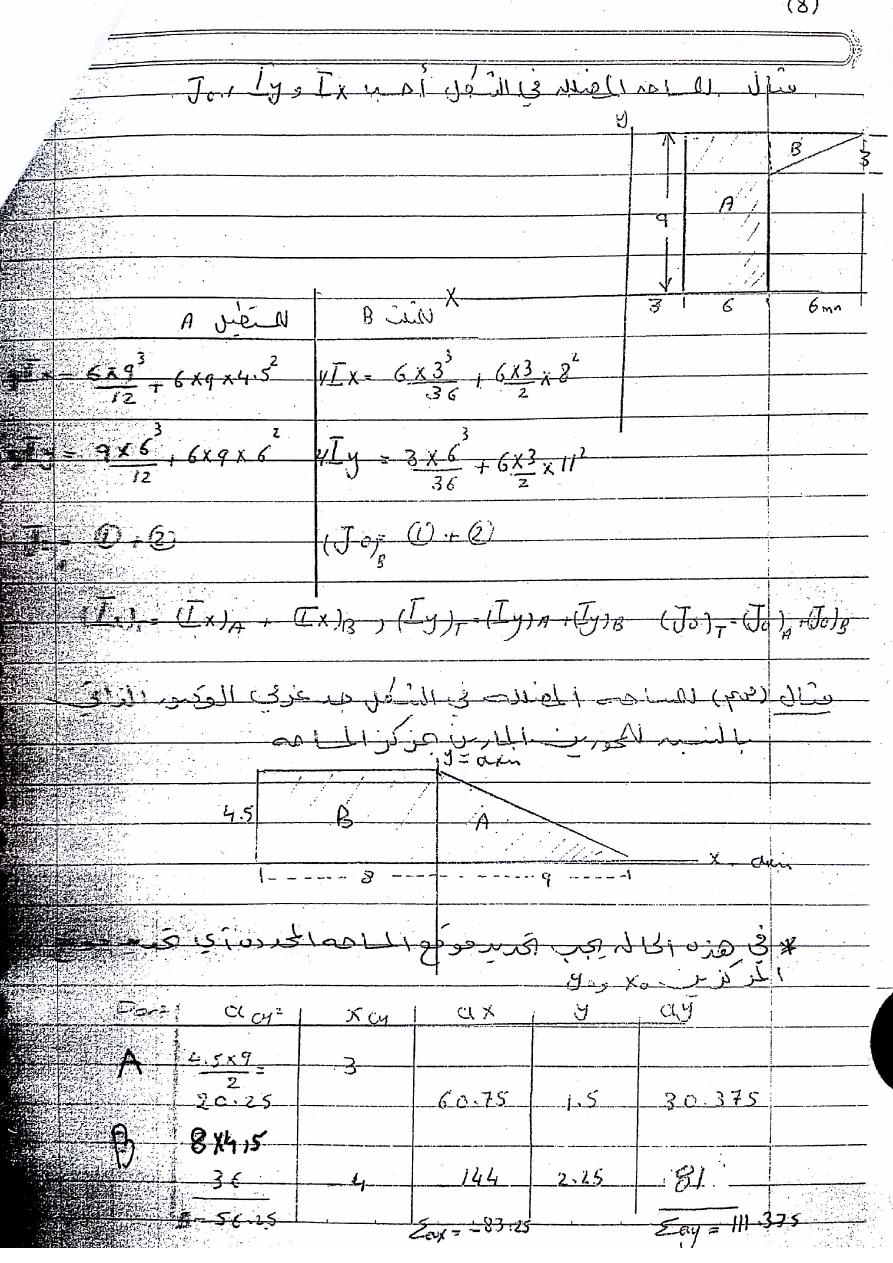 (8)
مثال للمساحه المضلله في الشكل أحسب Ix و Iy و Jo
y
B
3
A
9
3 6 6mm
X
للمستطيل A للمثلث B
Ix = 6×9³/12 + 6×9×4.5² Ix = 6×3³/36 + 6×3/2 × 8²
Iy = 9×6³/12 + 6×9×6² Iy = 3×6³/36 + 6×3/2 × 11²
① + ② (Jo)B = ① + ②
(Ix)T = (Ix)A + (Ix)B , (Iy)T = (Iy)A + (Iy)B (Jo)T = (Jo)A + (Jo)B
مثال للمساحه المضلله في الشكل جد عزمي القصور الذاتي
بالنسبه للمحورين المارين بمركز المساحه
y = axis
4.5 B A
x - axis
8 9
* في هذه الحاله يجب تحديد موقع المساحه المحدده أي تحديد
المركزين x₀ و y₀
Part a cm² x cm ax y ay
A 4.5×9/2 = 3
20.25 60.75 1.5 30.375
B 8×4.5
36 -4 144 2.25 81
56.25 Σax = -83.25 Σay = 111.375